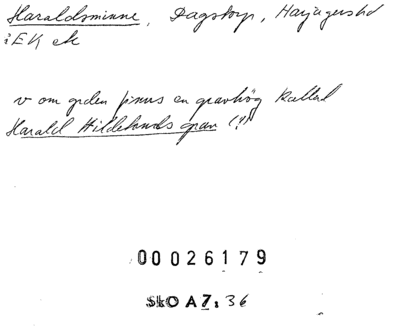 Haraldsminne, Dagstorp, Harjagers hd
i EK ek
v om gården finns en gravhög kallad
Harald Hildetands grav (?)
00026179
SkO A7:36